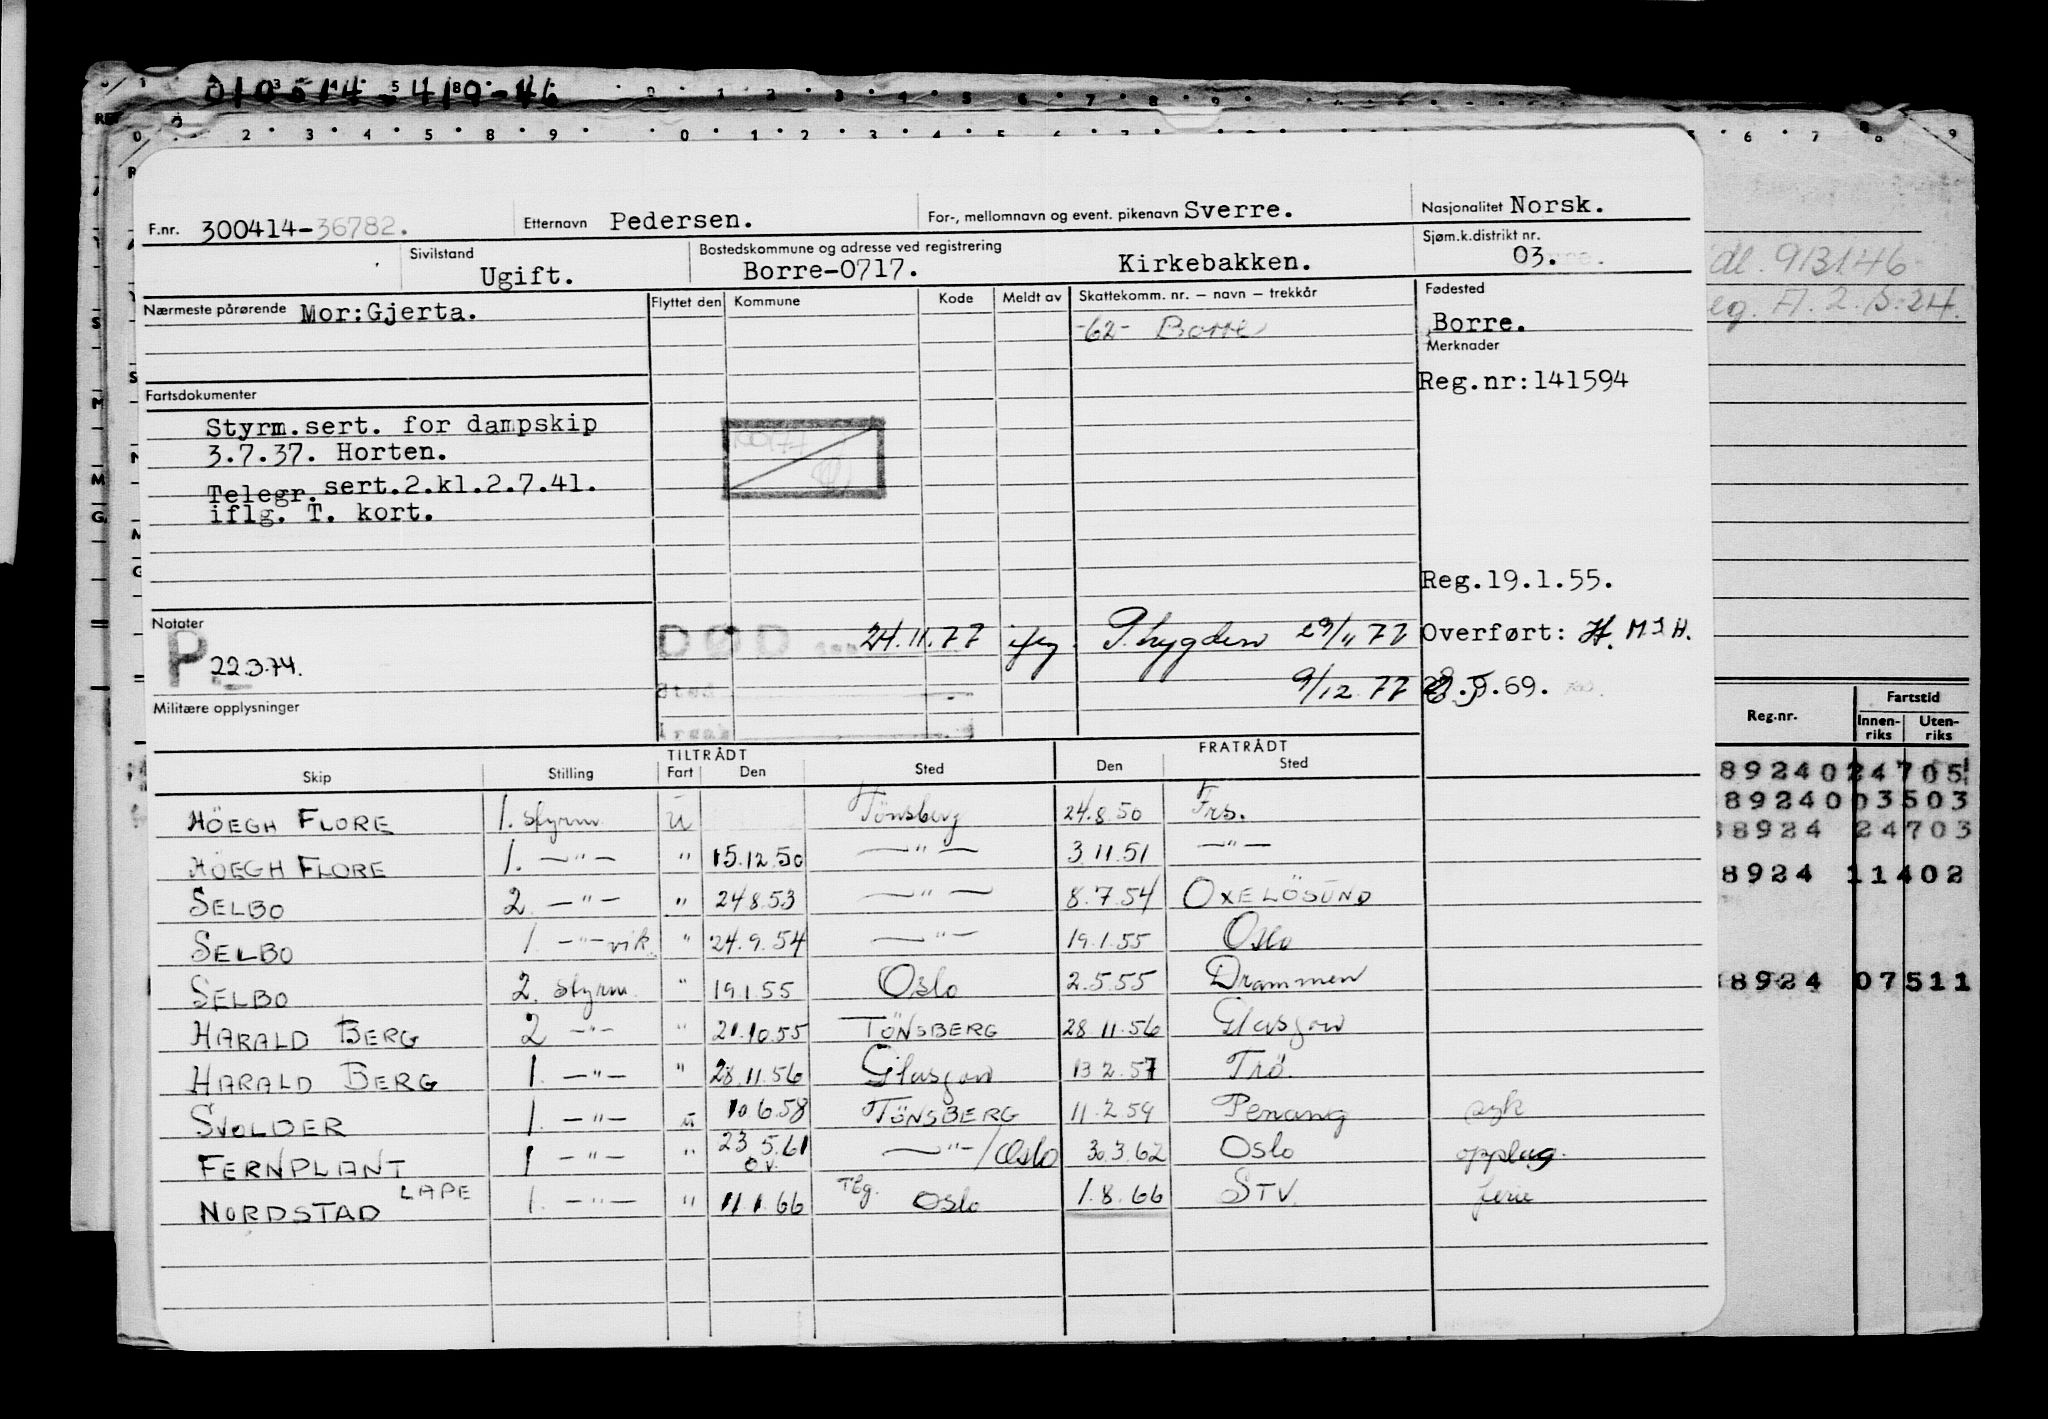 010514-5410-46
F.nr. 300414-36782. Etternavn Pedersen. For-, mellomnavn og event. pikenavn Sverre. Nasjonalitet Norsk.
Sivilstand Ugift. Bostedskommune og adresse ved registrering Borre-0717. Kirkebakken. Sjøm.k.distrikt nr. 03.
Nærmeste pårørende Mor:Gjerta. Flyttet den Kommune Kode Meldt av Skattekomm. nr. — navn — trekkår Fødested
-62- Borre Borre.
Merknader
Reg.nr:141594
Fartsdokumenter
Styrm.sert. for dampskip
3.7.37. Horten.
Telegr.sert.2.kl.2.7.41.
iflg. T. kort.
Reg.19.1.55.
Notater
P 22.3.74.
DØD 24.11.77 29/11 77 Overført: H. M S H.
9/12 77 .9.69.
Militære opplysninger
TILTRÅDT FRATRÅDT
Skip Stilling Fart Den Sted Den Sted
HÖEGH FLORE 1. styrm u Tönsberg 24.8.50 Frs.
HÖEGH FLORE 1. —"— " 15.12.50 —"— 3.11.51 —"—
SELBO 2. —"— " 24.8.53 —"— 8.7.54 OXELÖSUND
SELBO 1. —"— vik. " 24.9.54 —"— 19.1.55 Oslo
SELBO 2. styrm. " 19.1.55 Oslo 2.5.55 Drammen
HARALD BERG 2 —"— " 21.10.55 TÖNSBERG 28.11.56 Glasgow
HARALD BERG 1. —"— " 28.11.56 Glasgow 13.2.57 Trö.
SVOLDER 1. —"— u 10.6.58 TÖNSBERG 11.2.59 Penang syk
FERNPLANT 1 —"— " 23.5.61 —"—/Oslo 30.3.62 Oslo opplag.
NORDSTAD LAPE 1. —"— " 11.1.66 Tbg. Oslo 1.8.66 STV. ferie
Reg.nr. Fartstid
Innen-riks Uten-riks